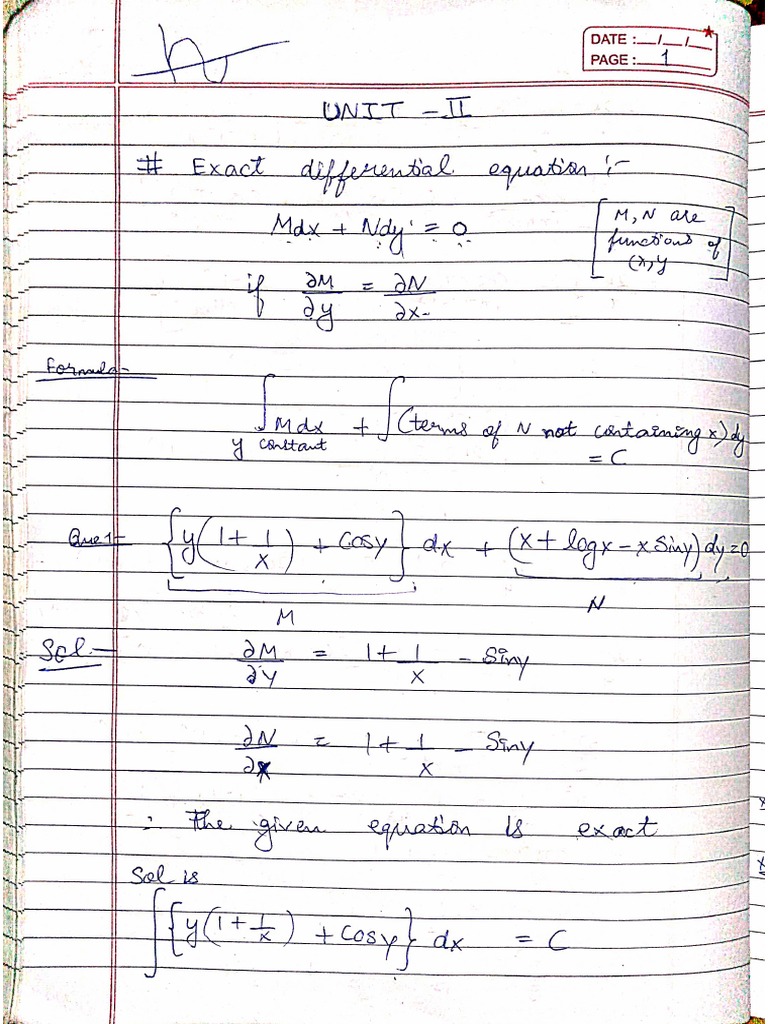 DATE :__/__/__
PAGE : 1
UNIT - II
# Exact differential equation :-
Mdx + Ndy = 0
[M, N are
functions of
(x, y]
if ∂M/∂y = ∂N/∂x
Formula -
∫ Mdx + ∫(terms of N not containing x) dy
y constant
= C
Que 1- {y(1 + 1/x) + Cosy} dx + (x + logx - x Siny) dy = 0
M N
Sol -
∂M/∂y = 1 + 1/x - Siny
∂N/∂x = 1 + 1/x - Siny
∴ The given equation is exact
Sol is
∫{y(1 + 1/x) + Cosy} dx = C